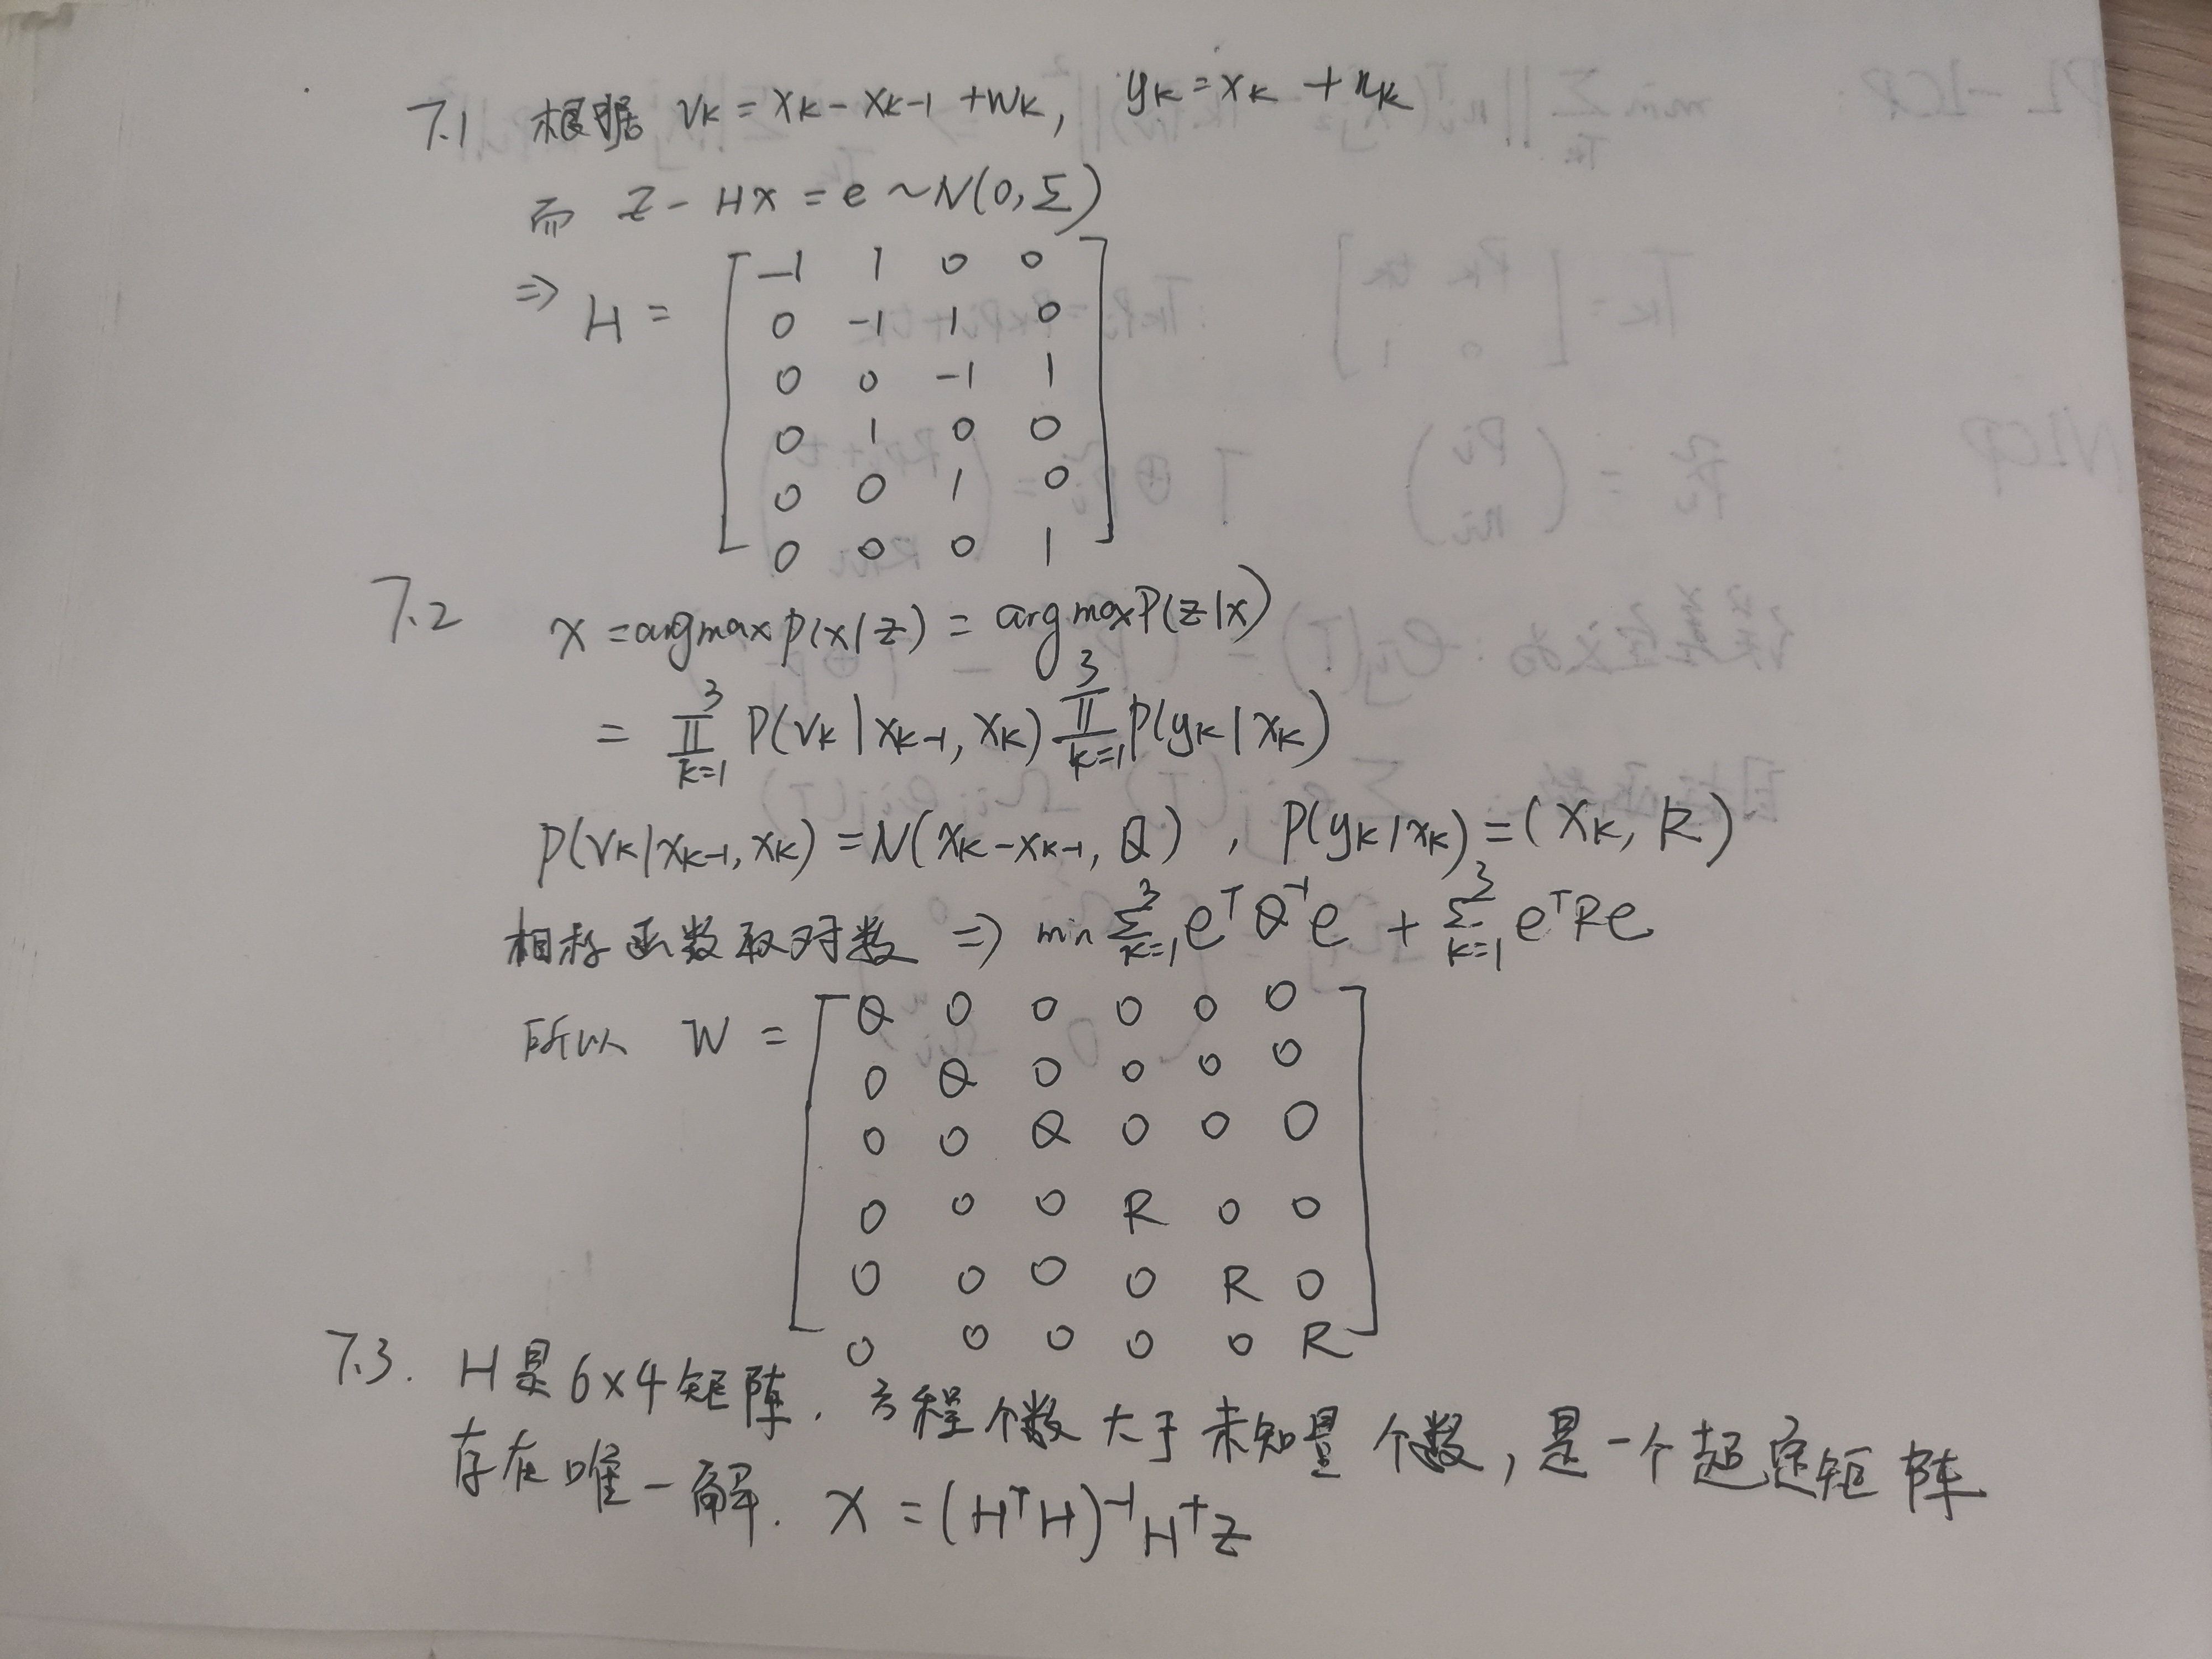 7.1 根据 vk = xk - xk-1 + wk, yk = xk + nk
而 z - Hx = e ~ N(0, Σ)
⇒ H =
-1 1 0 0
0 -1 1 0
0 0 -1 1
0 1 0 0
0 0 1 0
0 0 0 1
7.2 x = argmax P(x|z) = argmax P(z|x)
= ∏_{k=1}^{3} P(vk|xk-1, xk) ∏_{k=1}^{3} P(yk|xk)
P(vk|xk-1, xk) = N(xk - xk-1, Q), P(yk|xk) = (xk, R)
相称函数取对数 ⇒ min Σ_{k=1}^{3} e^T Q^{-1} e + Σ_{k=1}^{3} e^T R e
所以 W =
Q 0 0 0 0 0
0 Q 0 0 0 0
0 0 Q 0 0 0
0 0 0 R 0 0
0 0 0 0 R 0
0 0 0 0 0 R
7.3. H是6x4矩阵. 方程个数大于未知量个数, 是一个超定矩阵
存在唯一解. x = (H^T H)^{-1} H^T z